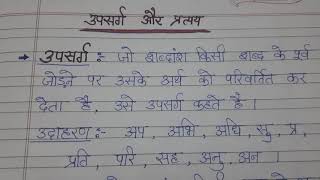 उपसर्ग और प्रत्यय
→ उपसर्ग :- जो शब्दांश किसी शब्द के पूर्व
जोड़ने पर उसके अर्थ को परिवर्तित कर
देता है, उसे उपसर्ग कहते है ।
उदाहरण:- अप, अभि, अधि, सु, प्र,
प्रति, परि, सह, अनु, अन ।